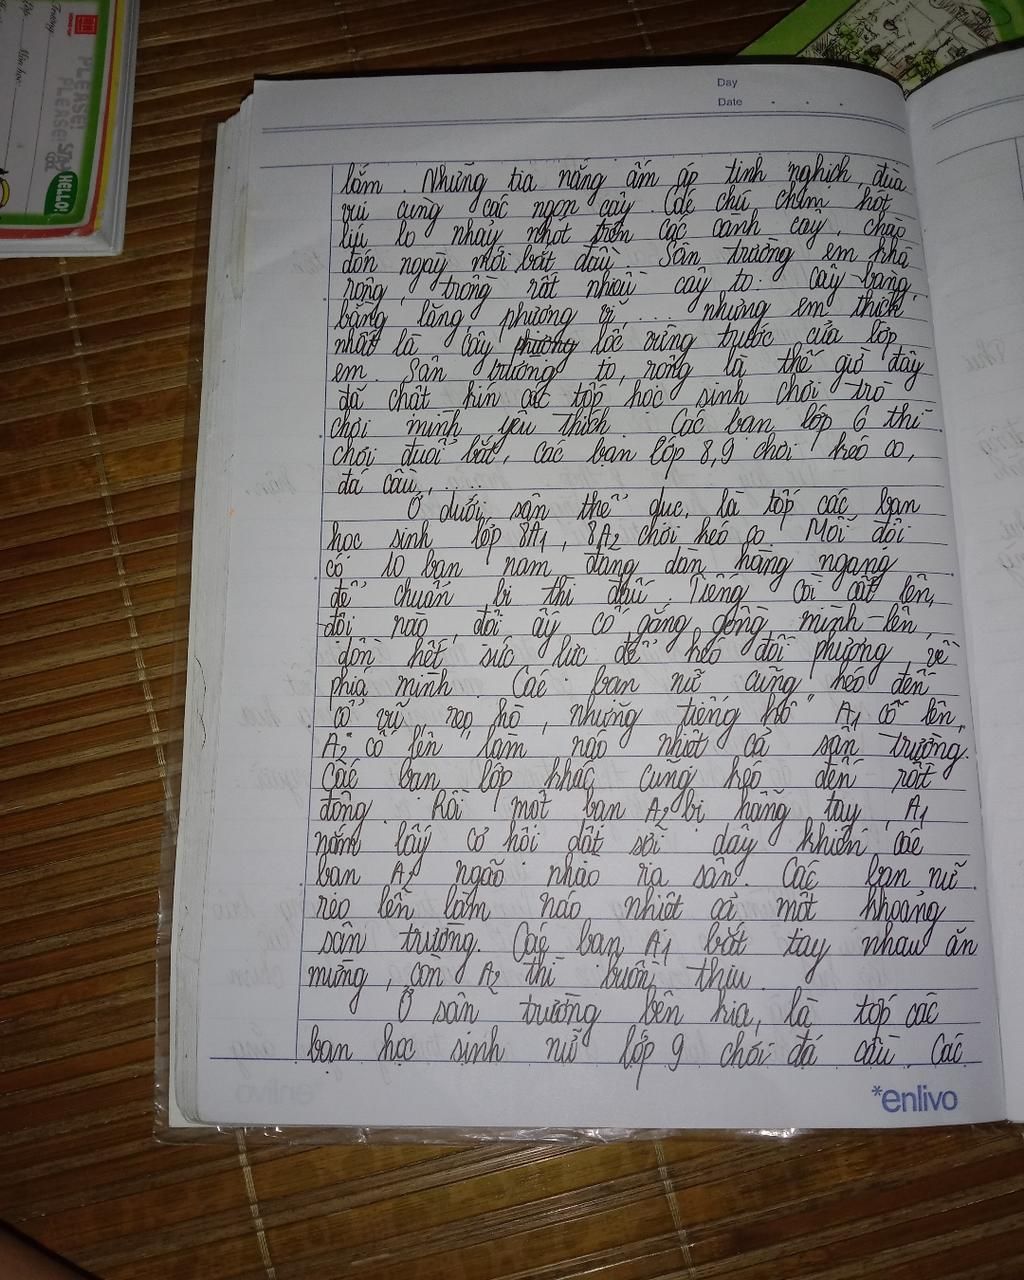 Trường
Lớp
Môn học:
PLEASE!
PLEASE!
HELLO!
Day
Date
lắm. Những tia nắng ấm áp tinh nghịch, đùa
vui cùng các ngọn cây. Các chú chim hót
líu lo nhảy nhót trên các cành cây, chào
đón ngày mới bắt đầu. Sân trường em khá
rộng, trồng rất nhiều cây to: cây bàng,
bằng lăng, phượng vĩ ... nhưng em thích
nhất là cây lộc vừng trước cửa lớp
em. Sân trường to, rộng là thế giờ đây
đã chật kín các tốp học sinh chơi trò
chơi mình yêu thích. Các bạn lớp 6 thì
chơi đuổi bắt, các bạn lớp 8,9 chơi kéo co,
đá cầu, ....
Ở dưới sân thể dục, là tốp các bạn
học sinh lớp 8A1, 8A2 chơi kéo co. Mỗi đội
có 10 bạn nam đang dàn hàng ngang
để chuẩn bị thi đấu. Tiếng còi cất lên,
đội nào, đội ấy cố gắng gồng mình lên,
dồn hết sức lực để kéo đối phương về
phía mình. Các bạn nữ cũng kéo đến
cổ vũ, reo hò, những tiếng hô "A1 cố lên,
A2 cố lên" làm náo nhiệt cả sân trường.
Các bạn lớp khác cũng kéo đến rất
đông. Rồi một bạn A2 bị hẫng tay, A1
nắm lấy cơ hội dật sợi dây khiến các
bạn ngão nhào ra sân. Các bạn nữ
reo lên làm náo nhiệt cả một khoảng
sân trường. Các bạn A1 bắt tay nhau ăn
mừng, còn A2 thì buồn thiu.
Ở sân trường bên kia, là tốp các
bạn học sinh nữ lớp 9 chơi đá cầu. Các
*enlivo